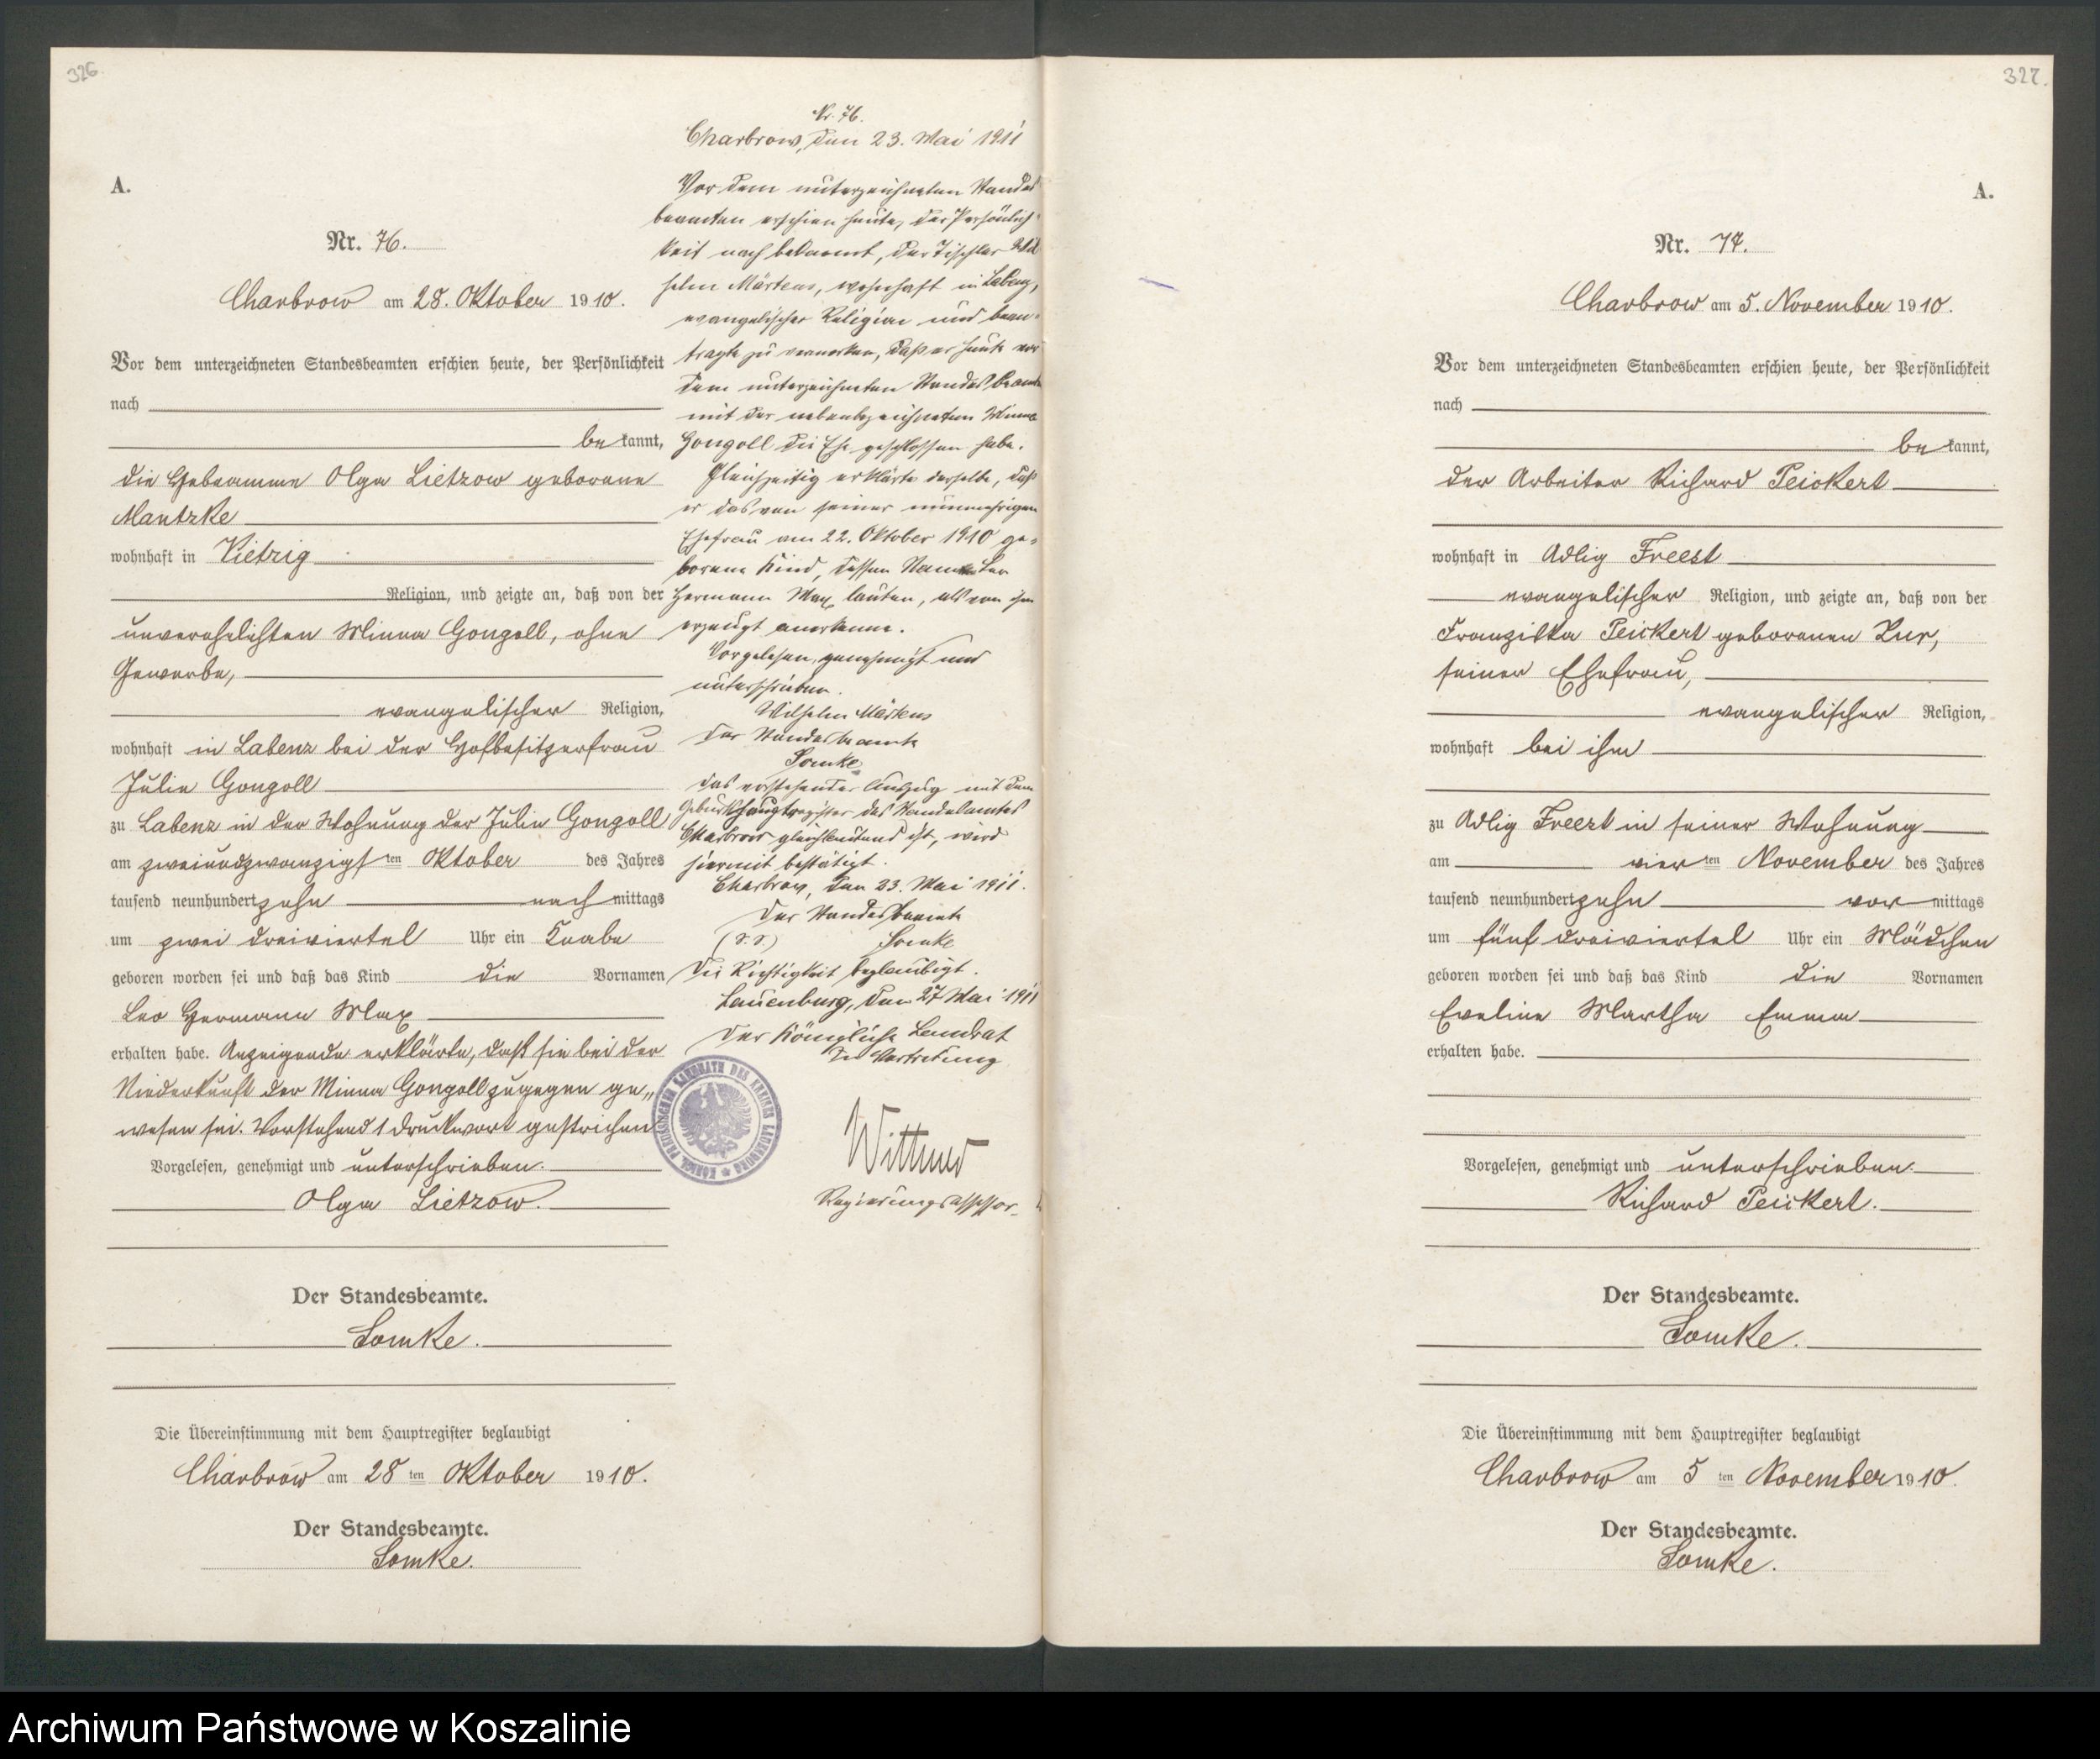 326
A.
Nr. 76.
Charbrow am 28. Oktober 1910.
Vor dem unterzeichneten Standesbeamten erschien heute, der Persönlichkeit
nach
be kannt,
die Hebeamme Olga Lietzow geborene
Mantzke
wohnhaft in Vietzig
Religion, und zeigte an, daß von der
unverehelichten Minna Gongoll, ohne
Gewerbe,
evangelischer Religion,
wohnhaft in Labenz bei der Hofbesitzerfrau
Julie Gongoll
zu Labenz in der Wohnung der Julie Gongoll
am zweiundzwanzigsten Oktober des Jahres
tausend neunhundert zehn nach mittags
um zwei dreiviertel Uhr ein Knabe
geboren worden sei und daß das Kind die Vornamen
Leo Hermann Max
erhalten habe. Anzeigende erklärte, daß sie bei der
Niederkunft der Minna Gongoll zugegen ge„
wesen sei. Vorstehend 1 Druckwort gestrichen
Vorgelesen, genehmigt und unterschrieben.
Olga Lietzow.
Der Standesbeamte.
Lomke.
Die Übereinstimmung mit dem Hauptregister beglaubigt
Charbrow am 28 ten Oktober 1910.
Der Standesbeamte.
Lomke.
Nr. 76.
Charbrow, den 23. Mai 1911
Vor dem unterzeichneten Standes
beamten erschien heute, der Persönlich
keit nach bekannt, der Tischler Wil
helm Märtens, wohnhaft in Labenz,
evangelischer Religion und bean
tragte zu vermerken, daß er heute vor
dem unterzeichneten Standesbeamten
mit der nebenbezeichneten Minna
Gongoll die Ehe geschlossen habe.
Gleichzeitig erklärte derselbe, daß
er das von seiner nunmehrigen
Ehefrau am 22. Oktober 1910 ge=
borene Kind, dessen Namen Leo
Hermann Max lauten, als von ihm
erzeugt anerkenne.
Vorgelesen, genehmigt und
unterschrieben.
Wilhelm Märtens
Der Standesbeamte
Lomke
Das vorstehender Auszug mit dem
Geburtshauptregister des Standesamtes
Charbrow gleichlautend ist, wird
hiermit bestätigt.
Charbrow, den 23. Mai 1911.
Der Standesbeamte
(L. S.) Lomke
Die Richtigkeit beglaubigt.
Lauenburg, den 27 Mai 1911
Der Königliche Landrat
In Vertretung
KÖNIGL. PREUSSISCHER LANDRATH DES KREISES LAUENBURG
Regierungsassessor.
327.
A.
Nr. 77.
Charbrow am 5. November 1910.
Vor dem unterzeichneten Standesbeamten erschien heute, der Persönlichkeit
nach
be kannt,
der Arbeiter Richard Peickert
wohnhaft in Adlig Freest
evangelischer Religion, und zeigte an, daß von der
Franziska Peickert geborenen Kur,
seiner Ehefrau,
evangelischer Religion,
wohnhaft bei ihm
zu Adlig Freest in seiner Wohnung
am vier ten November des Jahres
tausend neunhundert zehn vor mittags
um fünf dreiviertel Uhr ein Mädchen
geboren worden sei und daß das Kind die Vornamen
Eveline Martha Emma
erhalten habe.
Vorgelesen, genehmigt und unterschrieben.
Richard Peickert.
Der Standesbeamte.
Lomke.
Die Übereinstimmung mit dem Hauptregister beglaubigt
Charbrow am 5 ten November 1910.
Der Standesbeamte.
Lomke.
Archiwum Państwowe w Koszalinie